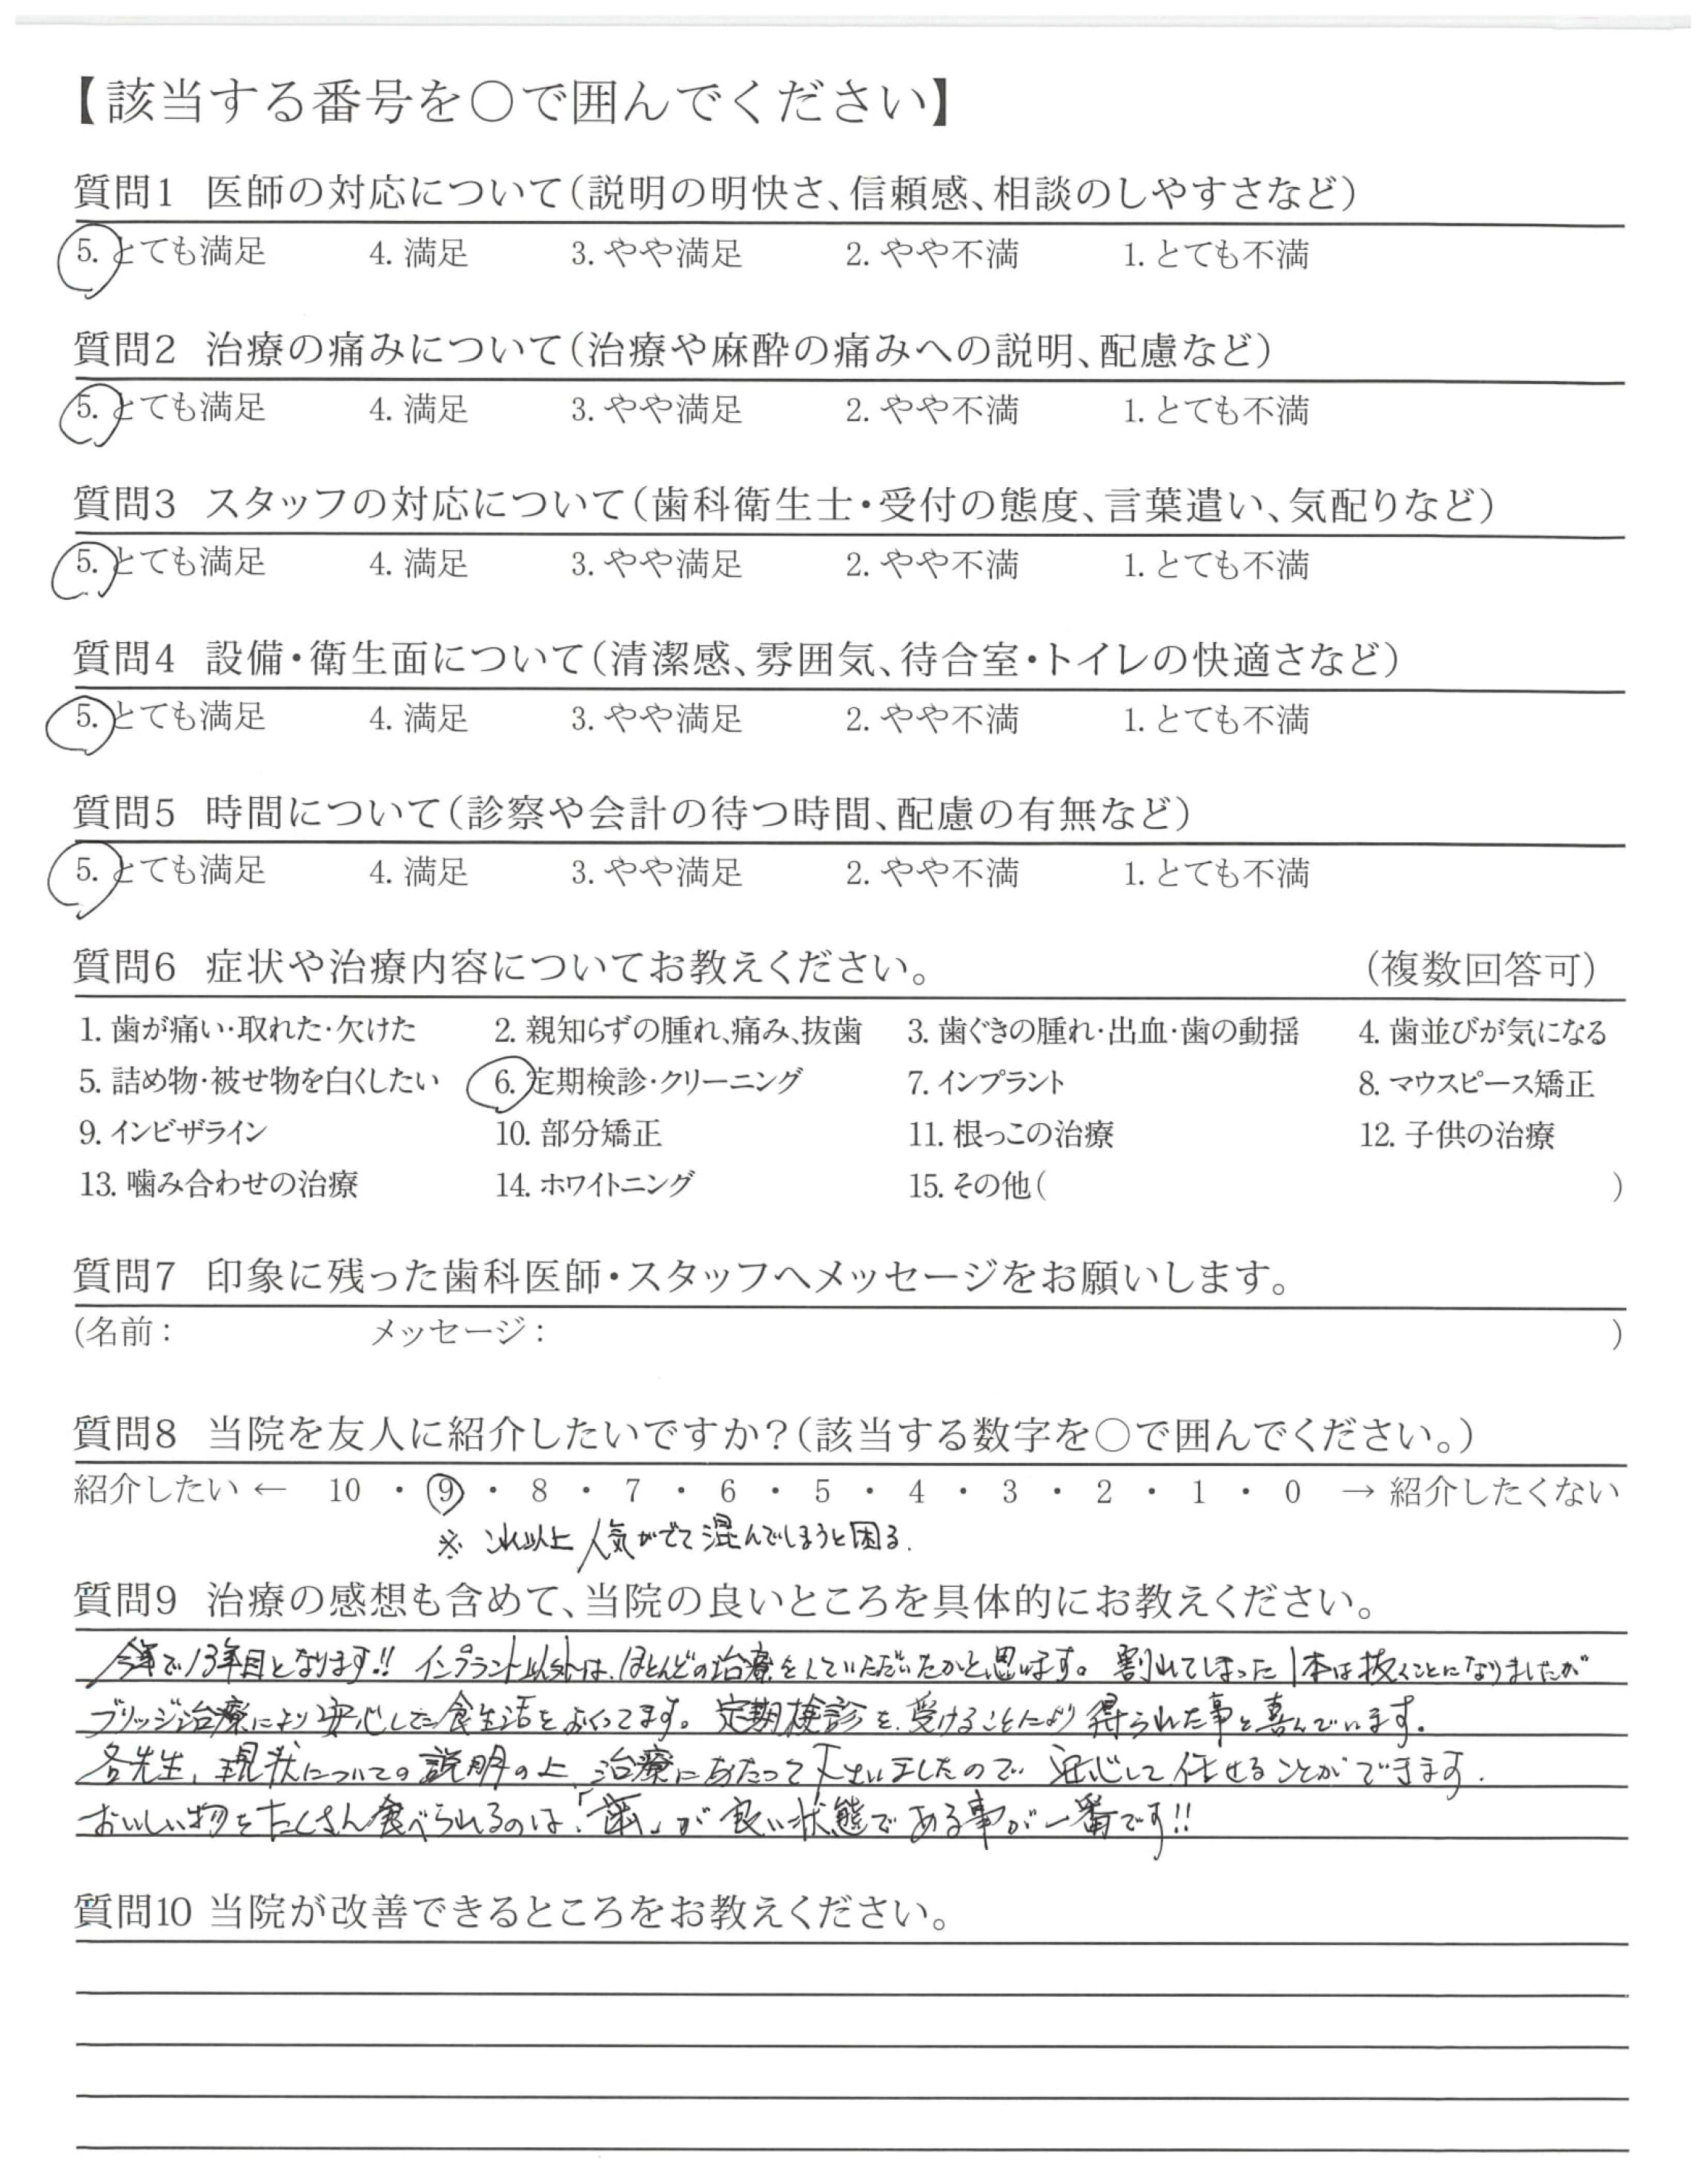 【該当する番号を○で囲んでください】
質問1 医師の対応について(説明の明快さ、信頼感、相談のしやすさなど)
5. とても満足 4. 満足 3. やや満足 2. やや不満 1. とても不満
質問2 治療の痛みについて(治療や麻酔の痛みへの説明、配慮など)
5. とても満足 4. 満足 3. やや満足 2. やや不満 1. とても不満
質問3 スタッフの対応について(歯科衛生士・受付の態度、言葉遣い、気配りなど)
5. とても満足 4. 満足 3. やや満足 2. やや不満 1. とても不満
質問4 設備・衛生面について(清潔感、雰囲気、待合室・トイレの快適さなど)
5. とても満足 4. 満足 3. やや満足 2. やや不満 1. とても不満
質問5 時間について(診察や会計の待つ時間、配慮の有無など)
5. とても満足 4. 満足 3. やや満足 2. やや不満 1. とても不満
質問6 症状や治療内容についてお教えください。 (複数回答可)
1. 歯が痛い・取れた・欠けた 2. 親知らずの腫れ、痛み、抜歯 3. 歯ぐきの腫れ・出血・歯の動揺 4. 歯並びが気になる
5. 詰め物・被せ物を白くしたい 6. 定期検診・クリーニング 7. インプラント 8. マウスピース矯正
9. インビザライン 10. 部分矯正 11. 根っこの治療 12. 子供の治療
13. 噛み合わせの治療 14. ホワイトニング 15. その他( )
質問7 印象に残った歯科医師・スタッフへメッセージをお願いします。
(名前: メッセージ: )
質問8 当院を友人に紹介したいですか?(該当する数字を○で囲んでください。)
紹介したい ← 10 ・ 9 ・ 8 ・ 7 ・ 6 ・ 5 ・ 4 ・ 3 ・ 2 ・ 1 ・ 0 → 紹介したくない
※ これ以上人気がでて混んでしまうと困る.
質問9 治療の感想も含めて、当院の良いところを具体的にお教えください。
今年で13年目となります!! インプラント以外は、ほとんどの治療をしていただいたかと思います。割れてしまった1本は抜くことになりましたが
ブリッジ治療により安心した食生活をおくってます。定期検診を、受けることにより得られた事と喜んでいます。
各先生、現状についての説明の上、治療にあたって下さいましたので 安心して任せることができます.
おいしい物をたくさん食べられるのは、「歯」が良い状態である事が一番です!!
質問10 当院が改善できるところをお教えください。